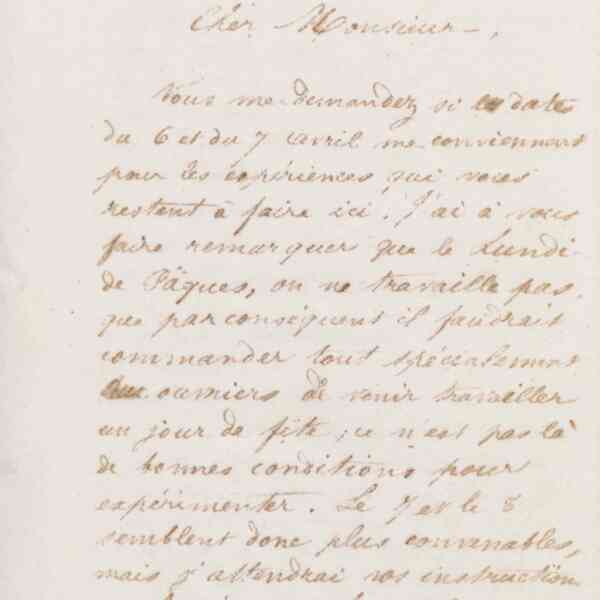 Cher Monsieur,
Vous me demandez si les dates
du 6 et du 7 avril me conviennent
pour les expériences qui vous
restent à faire ici. J'ai à vous
faire remarquer que le Lundi
de Pâques, on ne travaille pas,
que par conséquent il faudrait
commander tout spécialement
aux ouvriers de venir travailler
un jour de fête ; ce n'est pas là
de bonnes conditions pour
expérimenter. Le 7 et le 8
semblent donc plus convenables,
mais j'attendrai vos instructions